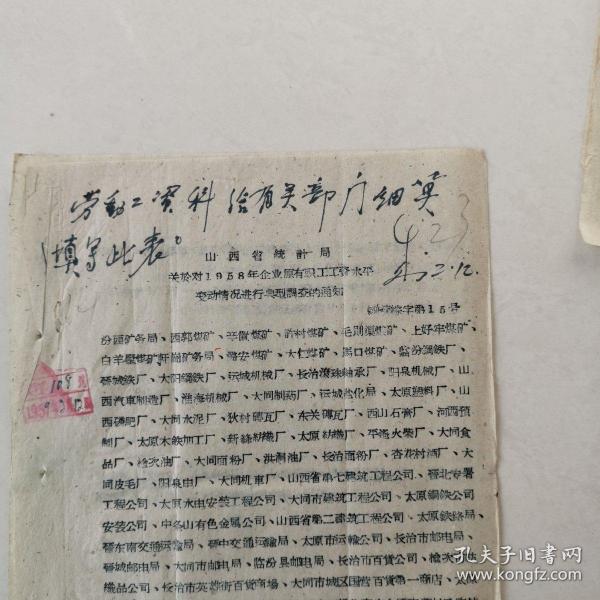 劳动工资科给有关部门细算
填写此表。
山西省統計局
关於对1958年企业原有职工工資水平
变动情况进行典型調查的通知
字第15号
汾西矿务局、西郭煤矿、辛置煤矿、
上好牢煤矿、
白羊墅煤矿 轩崗矿务局、潞安煤矿、大仁煤矿、
临汾鋼鉄厂、
晉城鉄厂、大阳鋼鉄厂、运城机械厂、长治滾珠軸承厂、阳泉机械厂、山
西汽車制造厂、淮海机械厂、大同制药厂、运城盐化局、太原塑料厂、山
西磷肥厂、大同水泥厂、狄村磚瓦厂、东关磚瓦厂、西山石膏厂、河西預
制厂、太原木鉄加工厂、新絳紡織厂、太原紡織厂、平遙火柴厂、大同食
品厂、榆次油厂、大同面粉厂、洪洞油厂、长治面粉厂、杏花村酒厂、大
同皮毛厂、阳泉电厂、大同机車厂、山西省第七建筑工程公司、晉北专署
工程公司、太原水电安装工程公司、大同市建筑工程公司、太原鋼鉄公司
安装公司、中条山有色金屬公司、山西省第二建筑工程公司、太原鉄路局、
晉东南交通运輸局、晉中交通运輸局、太原市运輸公司、长治市邮电局、
晉城邮电局、大同市邮电局、临汾县邮电局、长治市百貨公司、榆次
織品公司、长治市英雄街百貨商場、大同市城区国营百貨第一商店、
孔夫子旧书网
www.kongfz.com